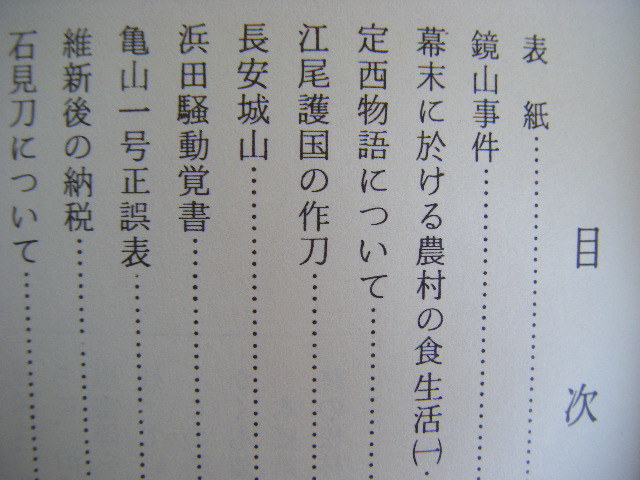 目次
表紙
鏡山事件
幕末に於ける農村の食生活㈠
定西物語について
江尾護国の作刀
長安城山
浜田騒動覚書
亀山一号正誤表
維新後の納税
石見刀について